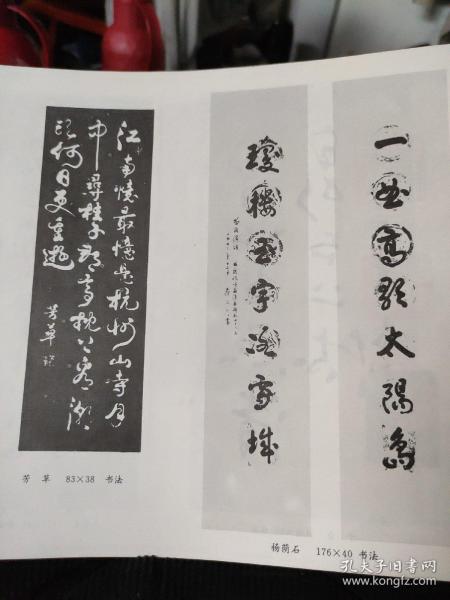 江南忆最忆是杭州山寺月
中寻桂子郡亭枕上看潮
头何日更重游
芳草
芳 草 83×38 书法
一曲高歌太阳岛
琼楼玉宇冰雪城
杨蕳石 176×40 书法
孔夫子旧书网
www.kongfz.com